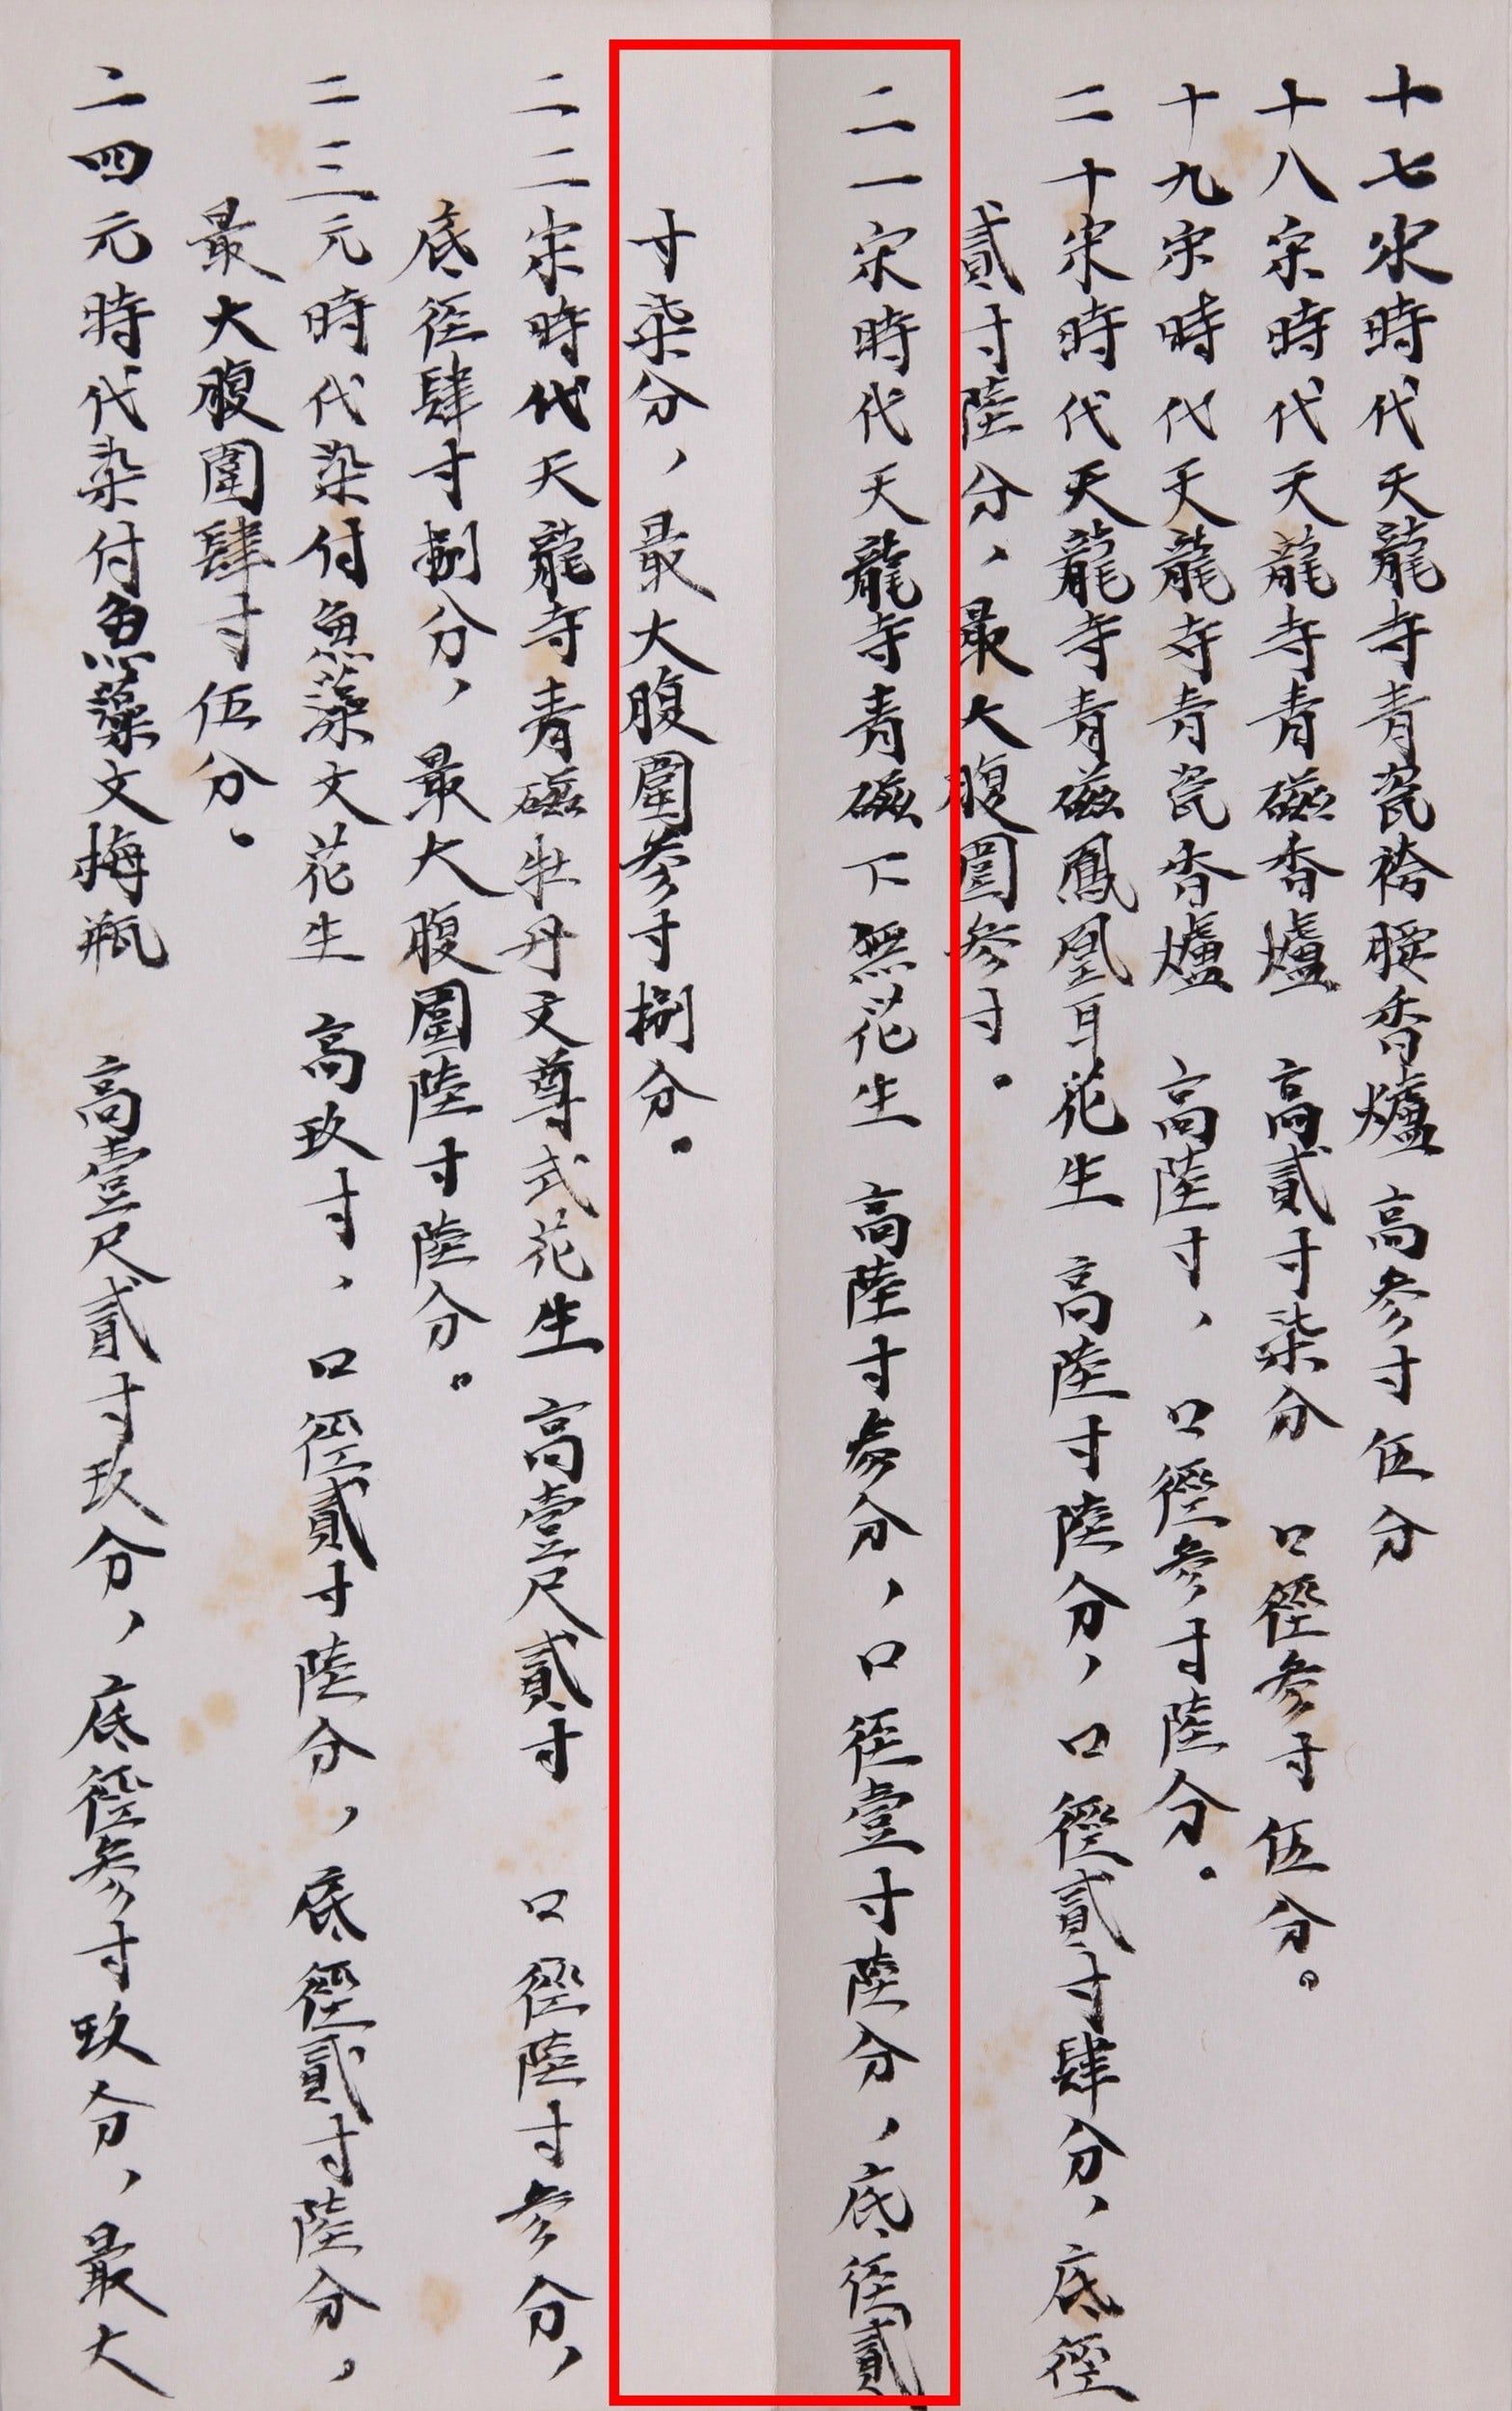 十七宋時代天龍寺青瓷袴腰香爐 高参寸伍分
十八宋時代天龍寺青磁香爐 高貳寸柒分 口徑参寸伍分。
十九宋時代天龍寺青瓷香爐 高陸寸、口徑参寸陸分。
二十宋時代天龍寺青磁鳳凰耳花生 高陸寸陸分，口徑貳寸肆分，底徑
貳寸陸分，最大腹圍参寸。
二一宋時代天龍寺青磁下蕪花生 高陸寸参分，口徑壹寸陸分，底徑貳
寸柒分，最大腹圍参寸捌分。
二二宋時代天龍寺青磁牡丹文尊式花生 高壹尺貳寸 口徑陸寸参分，
底徑肆寸捌分，最大腹圍陸寸陸分。
二三元時代染付魚藻文花生 高玖寸，口徑貳寸陸分，底徑貳寸陸分，
最大腹圍肆寸伍分。
二四元時代染付魚藻文梅瓶 高壹尺貳寸玖分，底徑参寸玖分，最大